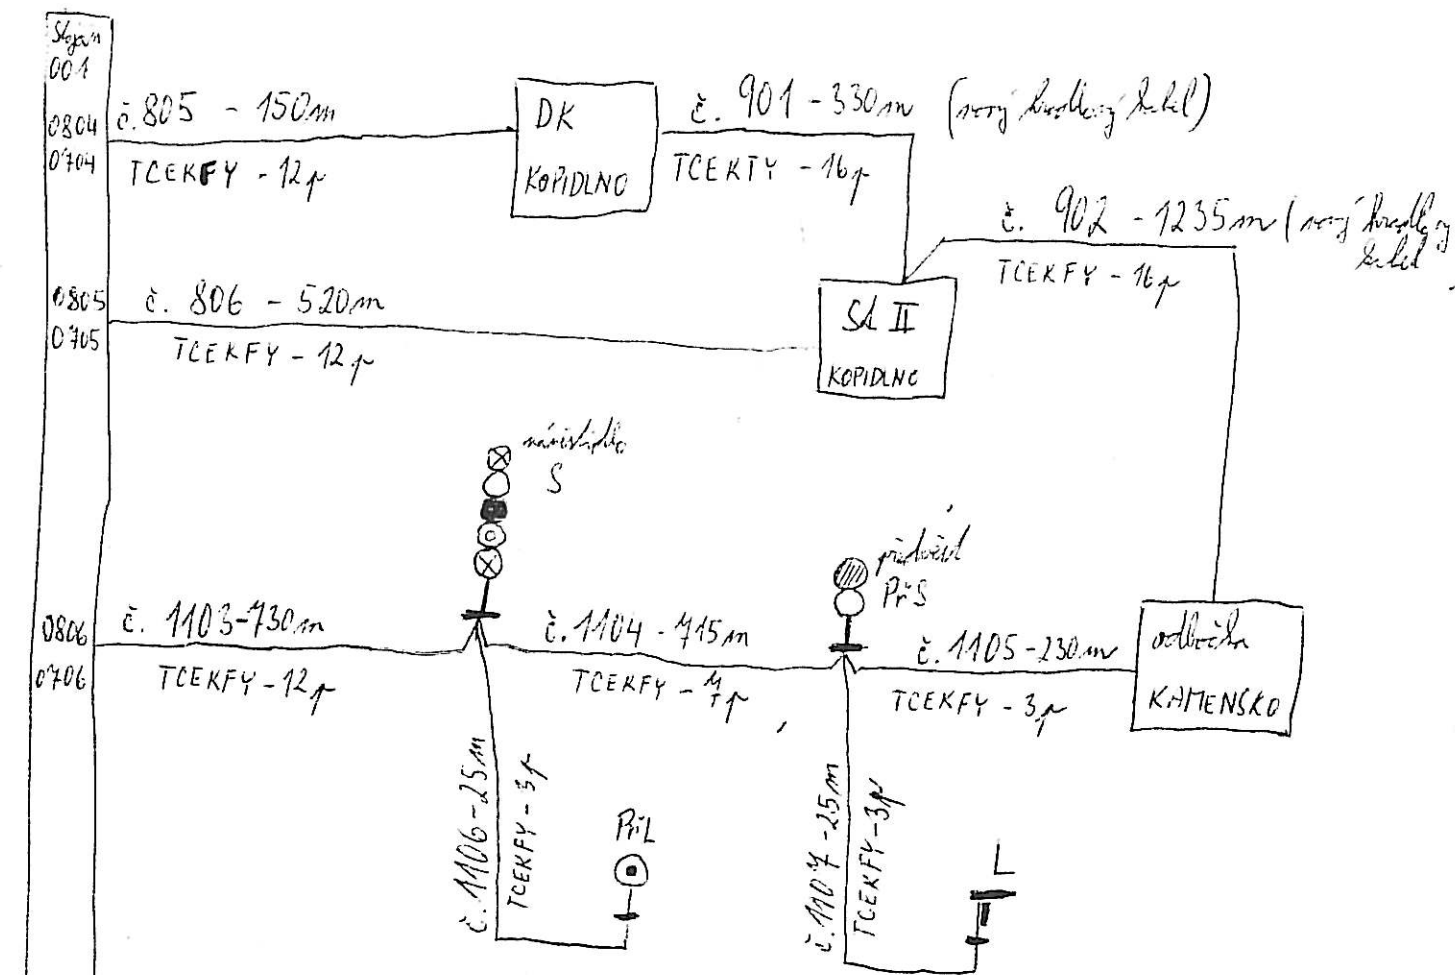 Stojan
001
0804
0704
č. 805 - 150m
TCEKFY - 12p
DK
KOPIDLNO
č. 901 - 330m (nový hradlový kabel)
TCEKTY - 16p
č. 902 - 1235m (nový hradlový
kabel
TCEKFY - 16p
0805
0705
č. 806 - 520m
TCEKFY - 12p
St II
KOPIDLNO
návěstidlo
S
předvěst
PřS
0806
0706
č. 1103 - 730m
TCEKFY - 12p
č. 1104 - 715m
TCEKFY - p
č. 1105 - 230m
TCEKFY - 3p
odbočka
KAMENSKO
č. 1106 - 25m
TCEKFY - 3p
PřL
č. 1107 - 25m
TCEKFY - 3p
L